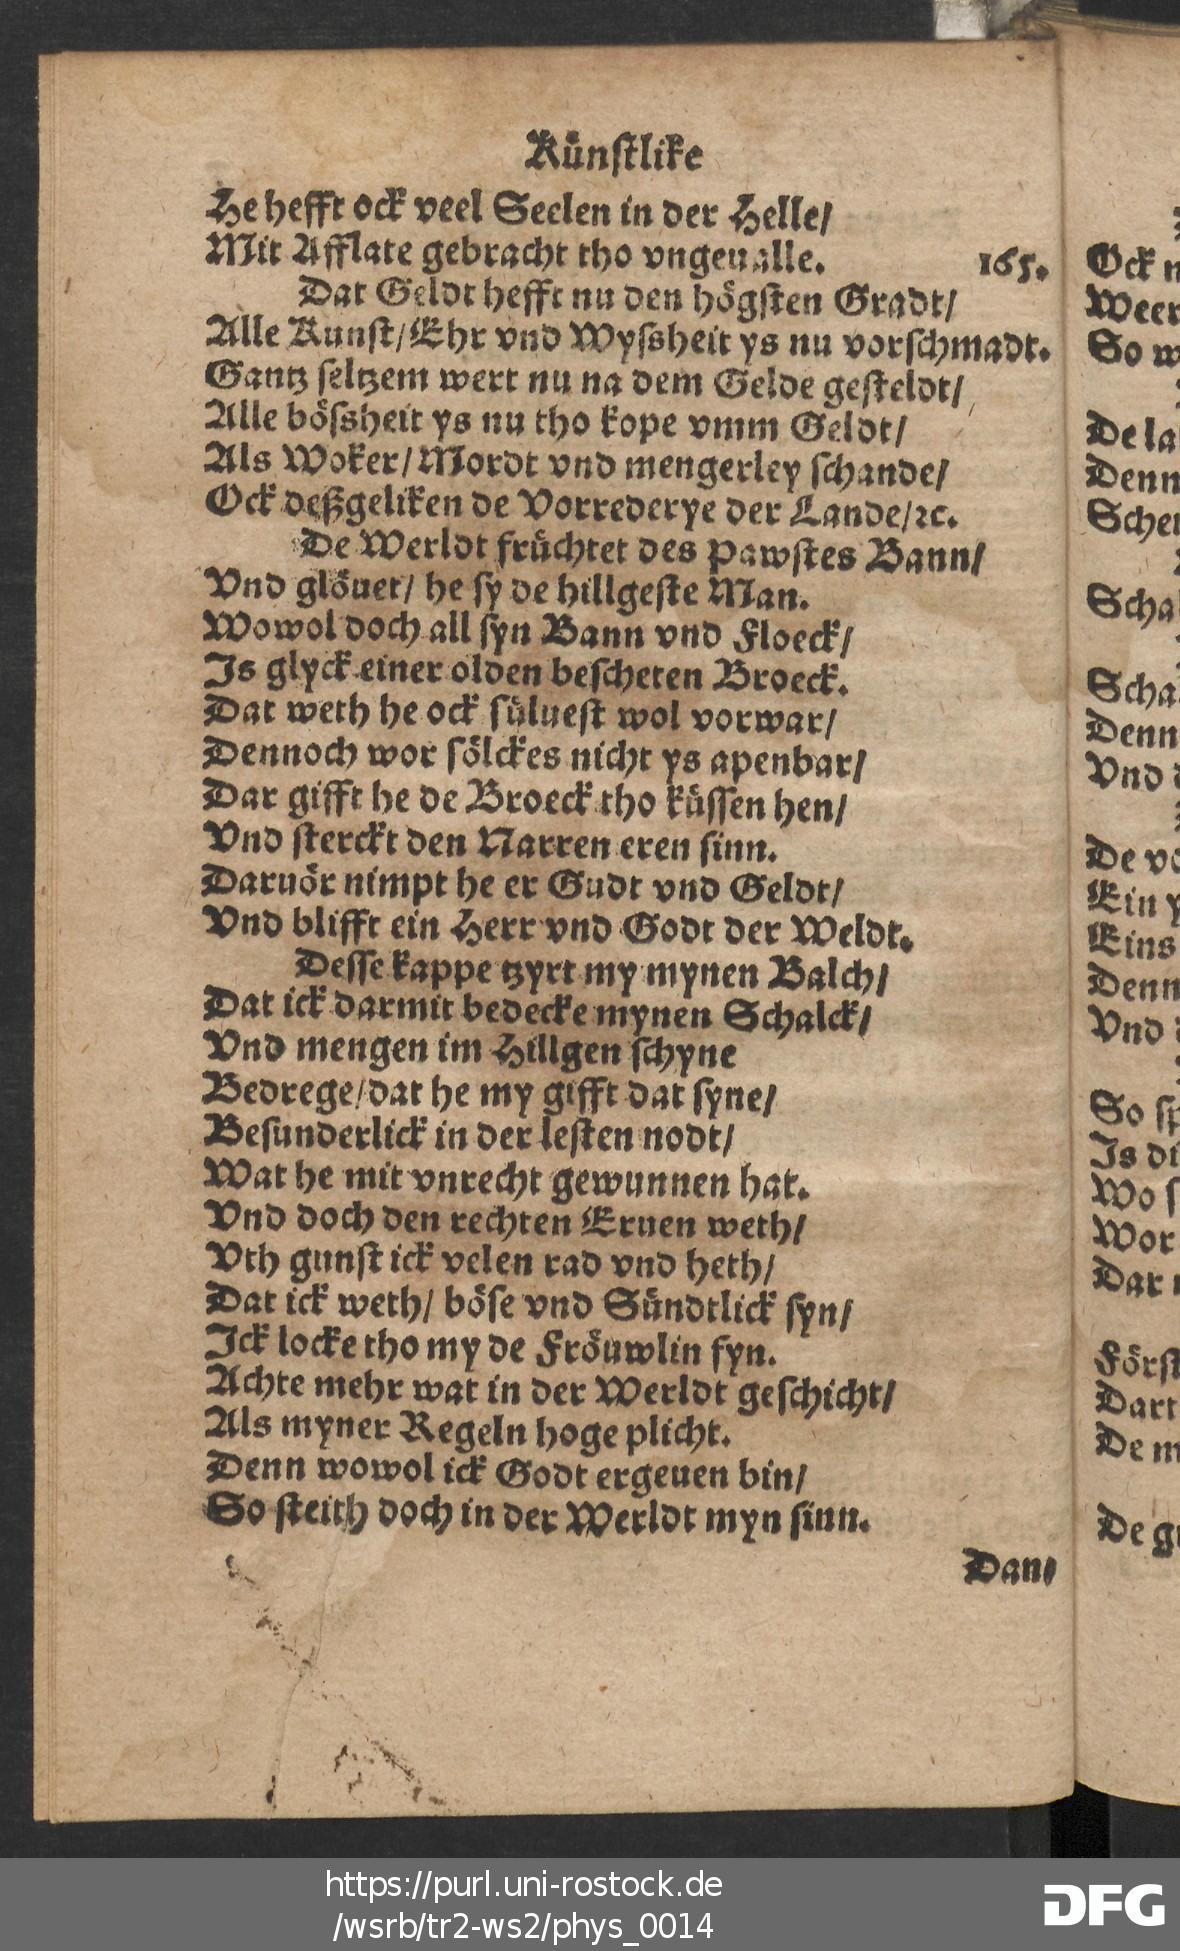 Künstlike
He hefft ock veel Seelen in der Helle/
Mit Afflate gebracht tho vngeualle. 165.
Dat Geldt hefft nu den högsten Gradt/
Alle Kunst/Ehr vnd Wyssheit ys nu vorschmadt.
Gantz seltzem wert nu na dem Gelde gesteldt/
Alle bössheit ys nu tho kope vmm Geldt/
Als Woker/Mordt vnd mengerley schande/
Ock deßgeliken de Vorrederye der Lande/ꝛc.
De Werldt früchtet des Pawstes Bann/
Vnd glöuet/ he sy de hillgeste Man.
Wowol doch all syn Bann vnd Floeck/
Is glyck einer olden bescheten Broeck.
Dat weth he ock süluest wol vorwar/
Dennoch wor sölckes nicht ys apenbar/
Dar gifft he de Broeck tho küssen hen/
Vnd sterckt den Narren eren sinn.
Daruör nimpt he er Gudt vnd Geldt/
Vnd blifft ein Herr vnd Godt der Weldt.
Desse kappe tzyrt my mynen Balch/
Dat ick darmit bedecke mynen Schalck/
Vnd mengen im Hillgen schyne
Bedrege/dat he my gifft dat syne/
Besunderlick in der lesten nodt/
Wat he mit vnrecht gewunnen hat.
Vnd doch den rechten Eruen weth/
Vth gunst ick velen rad vnd heth/
Dat ick weth/ böse vnd Sündtlick syn/
Ick locke tho my de Fröuwlin fyn.
Achte mehr wat in der Werldt geschicht/
Als myner Regeln hoge plicht.
Denn wowol ick Godt ergeuen bin/
So steith doch in der Werldt myn sinn.
Dan/
Ock
Weer
So
De
Denn
Vnd
De
Ein
Eins
Denn
Vnd
So
Is
Wo
Wor
Dar
De
De
https://purl.uni-rostock.de
/wsrb/tr2-ws2/phys_0014
DFG